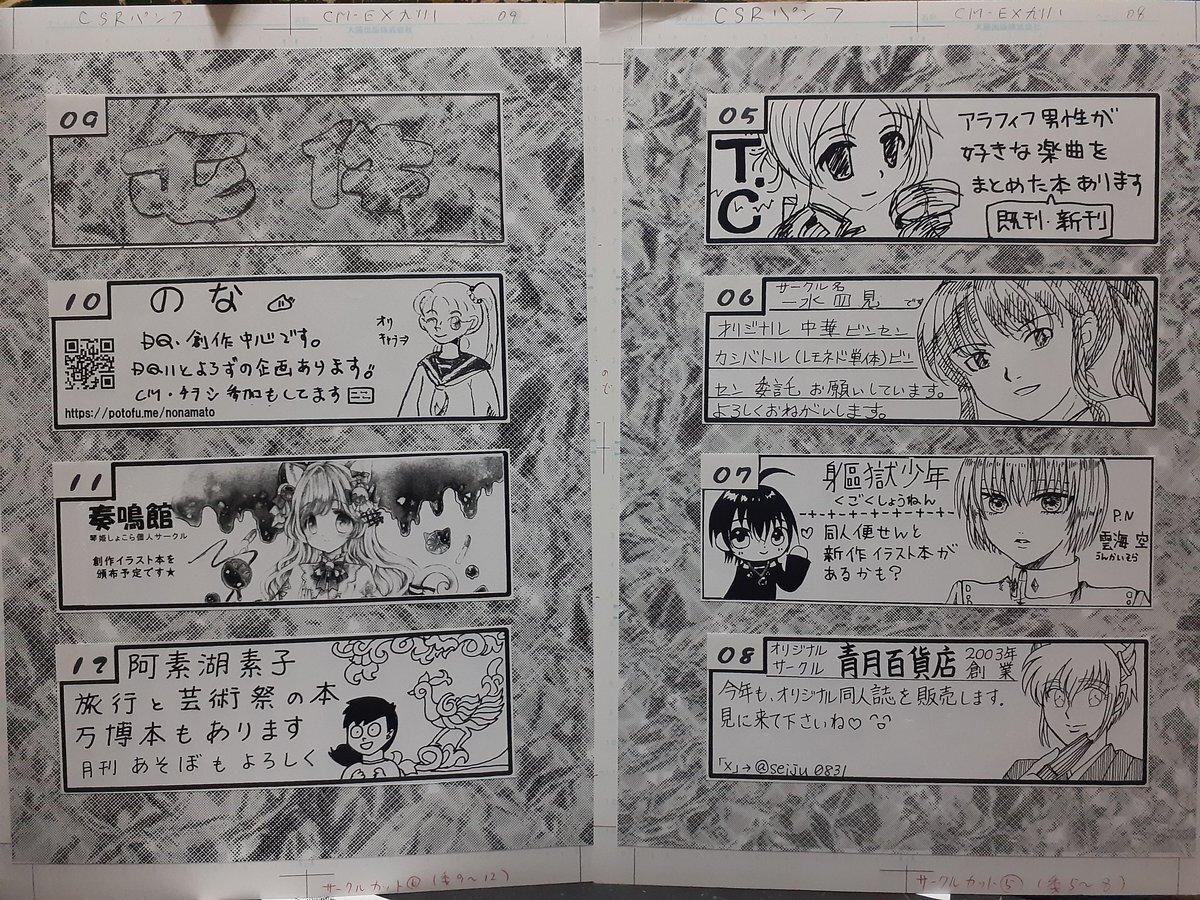 CSRパンフ CM-EX九州 09
09
10
のな
DQ・創作中心です。
DQ11とよろずの企画あります!!
CM・チラシ参加もしてます
オリ
キャラ→
https://potofu.me/nonamato
11
奏鳴館
琴姫しょこら個人サークル
創作イラスト本を
頒布予定です★
12
阿素湖素子
旅行と芸術祭の本
万博本もあります
月刊 あそぼもよろしく
サークルカット⑥(委9~12)
CSRパンフ CM-EX九州 08
05
T.C
アラフィフ男性が
好きな楽曲を
まとめた本あります
既刊・新刊
06
サークル名
一水四見 です
オリジナル 中華ビンセン
カシバトル(レモネド単体)ビン
セン 委託、お願いしています。
よろしくおねがいします。
07
身區獄少年
くごくしょうねん
♡同人便せんと
新作イラスト本が
あるかも?
P.N
雲海 空
うんかいそら
08
オリジナル
サークル
青月百貨店
2003年
創業
今年も、オリジナル同人誌を販売します。
見に来て下さいね♡
「X」→@seiju_0831
サークルカット⑤(委5~8)